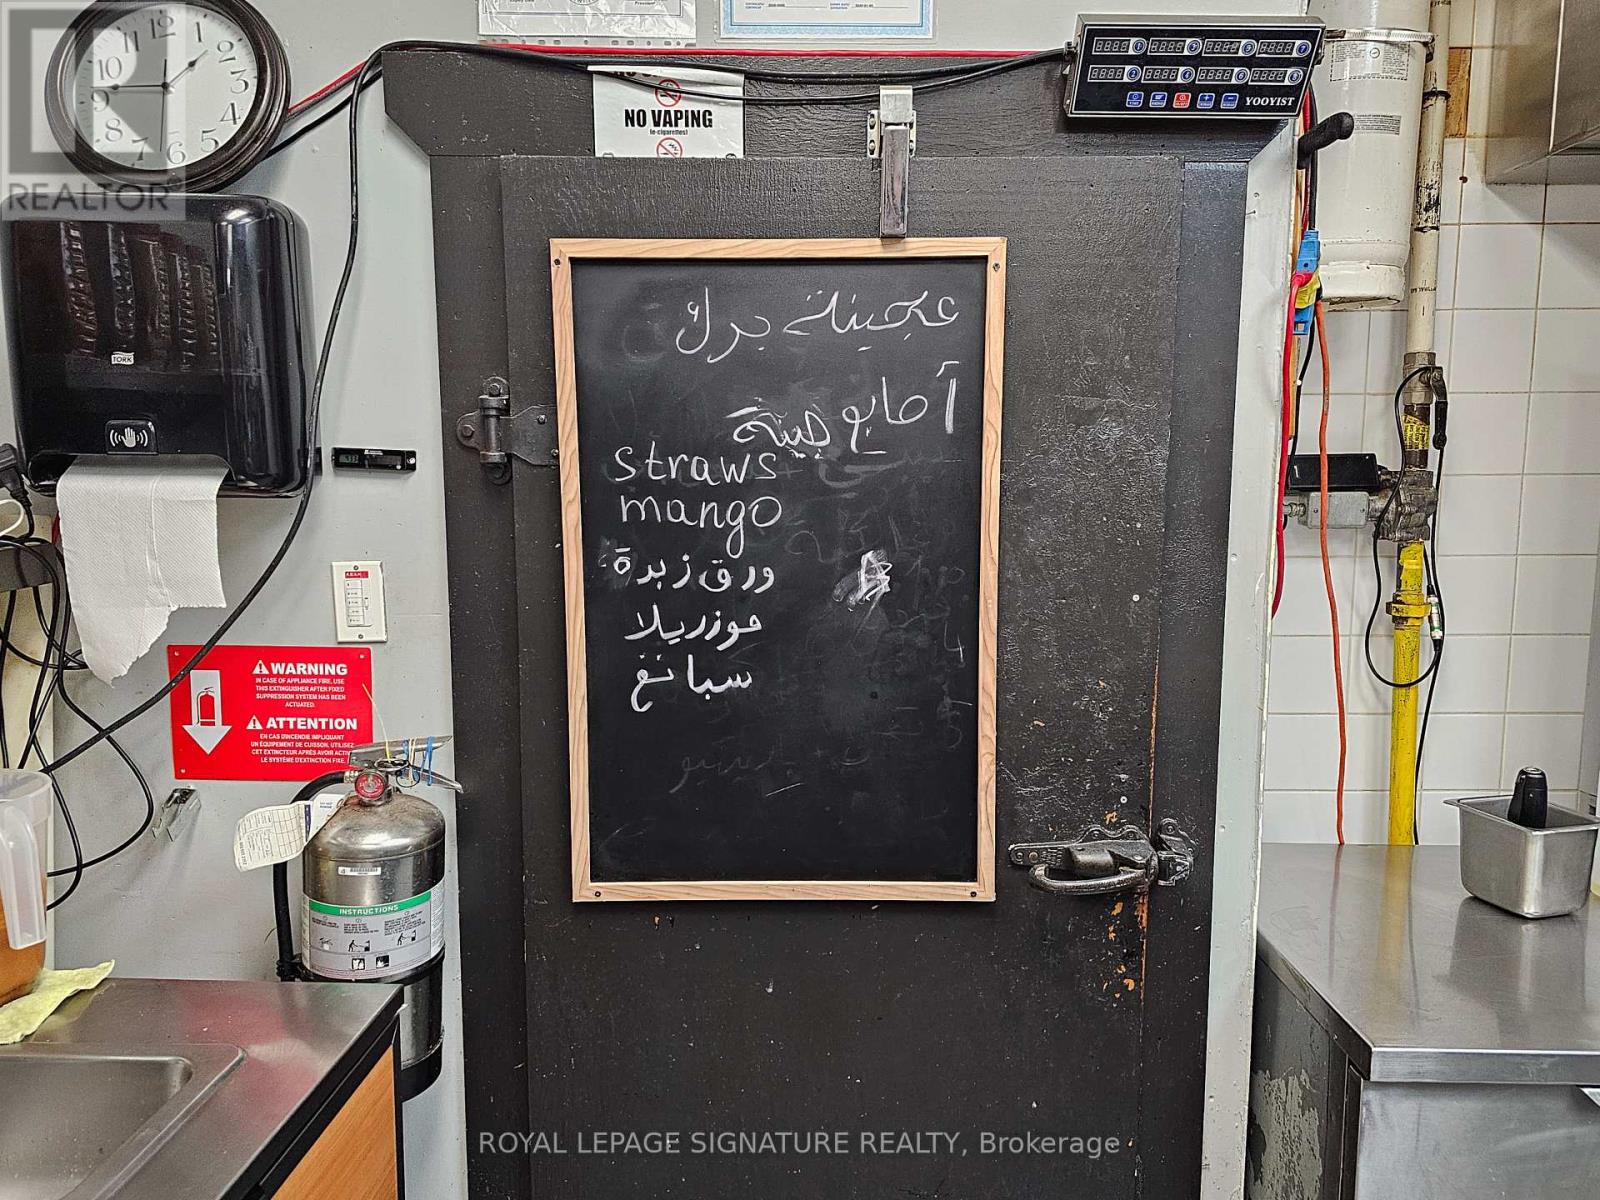 NO VAPING
(e-cigarettes)
YOOYIST
12
1
2
3
4
5
6
8
9
10
11
REALTOR
TORK
عجينة برك
أصابع جبنة
straws
mango
ورق زبدة
موزريلا
سبانغ
WARNING
IN CASE OF APPLIANCE FIRE, USE
THIS EXTINGUISHER AFTER FIXED
SUPPRESSION SYSTEM HAS BEEN
ACTUATED.
ATTENTION
EN CAS D'INCENDIE IMPLIQUANT
UN ÉQUIPEMENT DE CUISSON, UTILISEZ
CET EXTINCTEUR APRÈS AVOIR ACTIVÉ
LE SYSTÈME D'EXTINCTION FIXE.
INSTRUCTIONS
ROYAL LEPAGE SIGNATURE REALTY, Brokerage